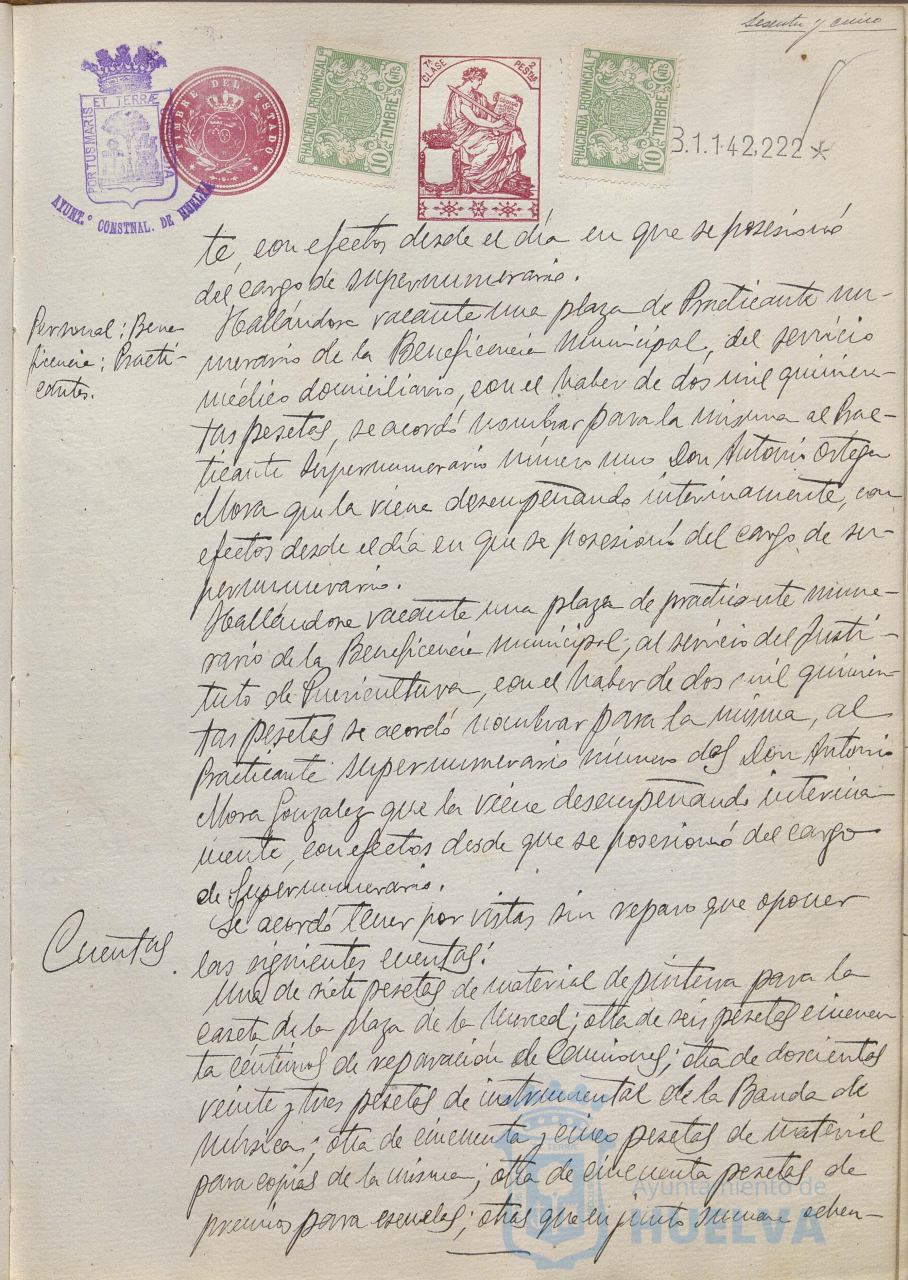 Sesenta y cinco
PORTUS MARIS ET TERRÆ CUSTODIA
AYUNT.º CONSTNAL. DE HUELVA
TIMBRE DEL ESTADO
HACIENDA PROVINCIAL
10 CNTS
TIMBRE
7ª CLASE
2 PESTAS
HACIENDA PROVINCIAL
10 CNTS
TIMBRE
B.1.142,222 *
te, con efectos desde el día en que se posesionó
del cargo de supernumerario.
Personal: Bene-
ficencia: Practi-
cantes.
Hallándose vacante una plaza de Practicante nu-
merario de la Beneficencia Municipal, del servicio
médico domiciliario, con el haber de dos mil quinien-
tas pesetas, se acordó nombrar para la misma al Prac-
ticante Supernumerario número uno Don Antonio Ortega
Mora que la viene desempeñando interinamente, con
efectos desde el día en que se posesionó del cargo de su-
pernumerario.
Hallándose vacante una plaza de practicante nume-
rario de la Beneficencia municipal, al servicio del Insti-
tuto de Puericultura, con el haber de dos mil quinien-
tas pesetas se acordó nombrar para la misma, al
Practicante supernumerario número dos Don Antonio
Mora Gonzalez que la viene desempeñando interina-
mente, con efectos desde que se posesionó del cargo
de Supernumerario.
Cuentas.
Se acordó tener por vistas sin reparo que oponer
las siguientes cuentas:
Una de siete pesetas de material de pintura para la
caseta de la plaza de la Merced; otra de seis pesetas cincuen-
ta céntimos de reparación de Camiones; otra de doscientas
veinte y tres pesetas de instrumental de la Banda de
Música; otra de cincuenta y cinco pesetas de material
para copias de la misma; otra de cincuenta pesetas de
premios para escuelas; otras que en junto suman ochen-
Ayuntamiento de
HUELVA